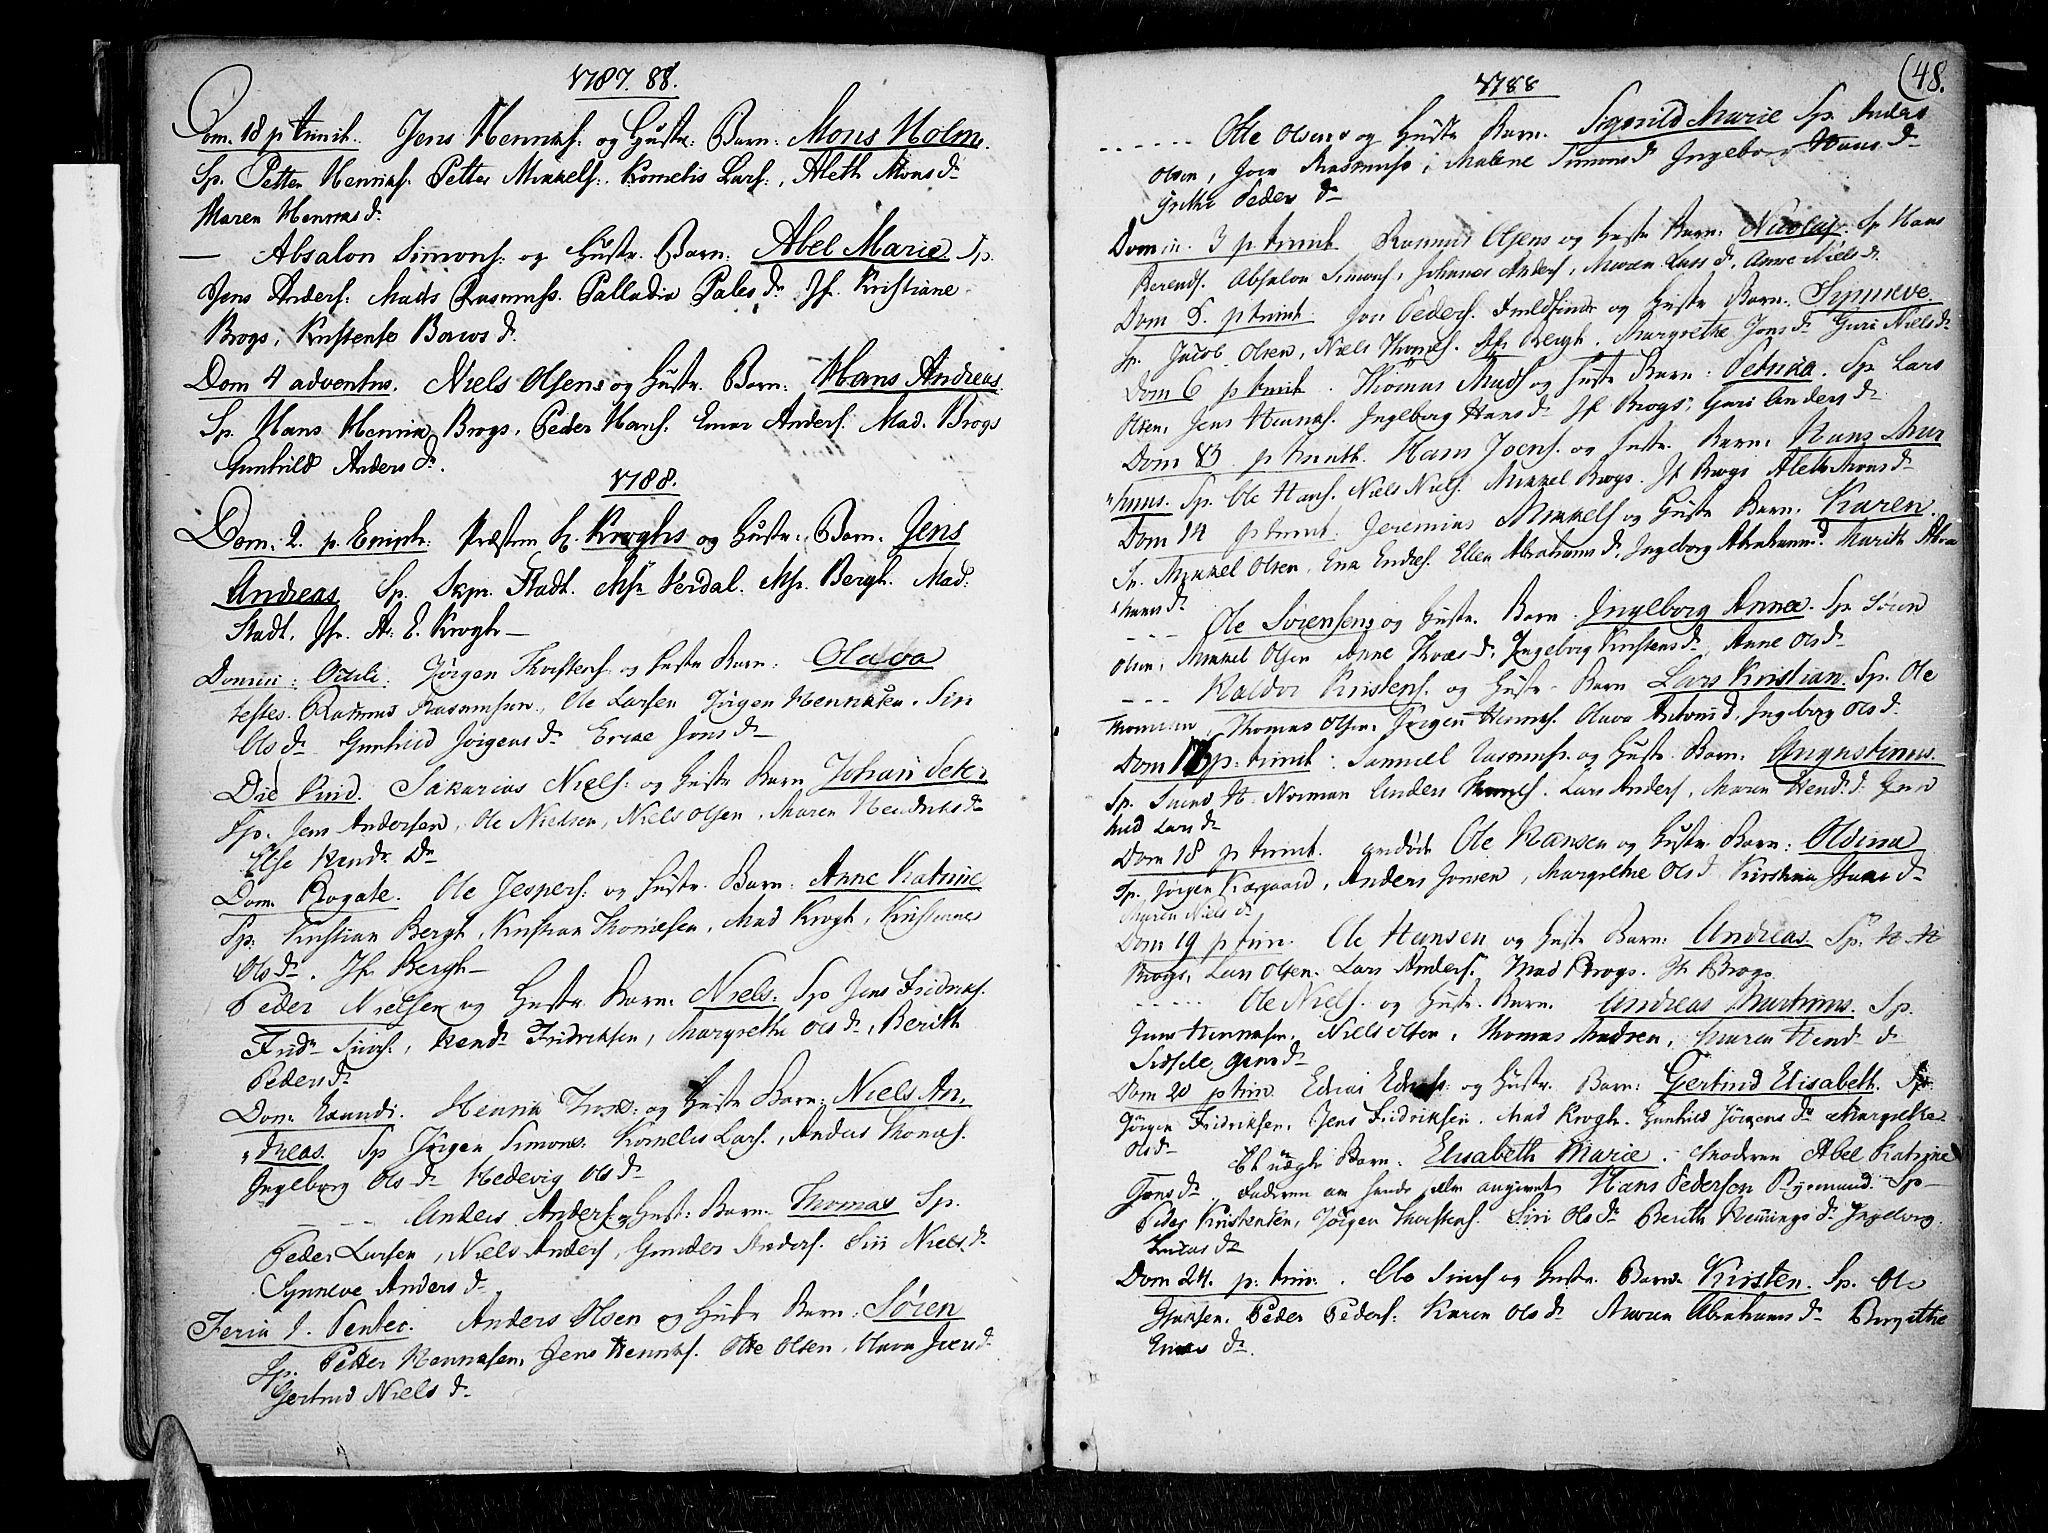 1787. 88.
Dom. 18 p trinit. Jens Henriks. og Hustr: Barn: Mons Holm.
Sp. Petter Henriks. Petter Mikkels:, Kornelis Lars:, Aleth Monsdr
Maren Henriksdr
— Absalon Simons: og Hustr. Barn: Abel Marie Sp.
Jens Anders: Mads Rasmuss. Palladia Palesdr Jf. Kristiane
Brogs, Kristense
Dom 4 adventus. Niels Olsens og Hustr. Barn: Hans Andreas
Sp. Hans Henrik Brogs, Peder Hans. Einar Anders. Mad. Brogs
Gunhild Andersdr.
1788.
Dom. 2. p. Epiph: Præsten H. Kroghs og Hustr:, Barn. Jens
Andreas Sp. Skpr. Stadt. Msr Verdal. Msr. Bergh. Mad:
Stadt. Jfr. A. E. Krogh —
Domin: Oculi. Jørgen Thorstens. og Hustr Barn: Olava
testes. Rasmus Rasmusen, Ole Larsen Jørgen Henriksen. Siri
Olsdr Gunhild Jørgensdr Erike Jonsdr
Die Sakarias Niels: og Hustr Barn Johan Peter
Sp. Jens Andersen, Ole Nielsen, Niels Olsen, Maren Hendriksdr
Else Hendr. Dr
Dom. Rogate. Ole Jespers: og Hustr. Barn: Anne Katrine
Sp: Kristian Bergh, Kristian Thomesen, Mad Krogh, Kristianne
Olsdr. Jfr Bergh —
Peder Nielsen og Hustr. Barn: Niels. Sp Jens Fridriks.
Fridr Siurs., Hendr Fridriksen, Margrethe Olsdr, Berith
Pedersdr
Dom. Exaudi. Henrik og Hustr Barn: Niels An,
"dreas. Sp Jørgen Simons. Kornelis Lars., Anders Thomas.
Ingeborg Olsdr Hedevig Olsdr
- - - Anders Anders. og Hust: Barn. Thomas Sp.
Peder Larsen, Niels Anders, Gunder Anders. Siri Nielsdr
Synneve Andersdr
Feria 1. Pentec. Anders Olsen og Hustr Barn: Søren
Sp. Petter Henriksen, Jens Henriks. Ole Olsen,
Gertrud Nielsdr
1788
(48.
- - - - - - Ole Olsens og Hustr Barn. Sigenild Marie Sp. Anders
Olsen, Joen Rasmuss, Malene Simonsdr Ingeborg Hansdr
Grethe Pedersdr
Domin. 3 p trinit. Rasmus Olsens og Hustr Barn: Nicolay. Sp Hans
Berends. Absalon Simons, Johanes Anders, Maren Larsdr, Anne Nielsdr
Dom 5. p trinit. Jon Peders. og Hustr Barn. Synneve.
Sp. Jacob Olsen, Niels Thomes. Jfr Bergh. Margrethe Jonsdr Guri Nielsdr
Dom 6 p trinit. Thomas Mads og Hustr Barn: Petrika. Sp. Lars
Olsen, Jens Henriks. Ingeborg Hansdr Jf Brogs, Guri Andersdr
Dom 13 p trinit. Hans Joens. og Hustr. Barn: Hans Mar
"tinus. Sp. Ole Hans. Niels Niels. Mikkel Brogs. Jf Brogs Aleth Monsdr
Dom 14 p trinit. Jeremias Mikkels og Hustr Barn. Karen.
Sp. Mikkel Olsen, Erik Endres. Ellen Abrahamsdr, Ingeborg Abrahamsd. Marith Abra
"hamsdr
- - - Ole Sørensens og Hustr. Barn Ingeborg Anna. Sp. Søren
Olsen, Mikkel Olsen Anne Ingeborg Kristensdr, Anne Olsdr
- - - Haldor Kristens. og Hustr. Barn Lars Kristian. Sp. Ole
Thomesen, Thomas Olsen, Jørgen Henriks. Olava Ingeborg Olsdr
Dom 17 p: trinit. Samuel Rasmuss. og Hustr Barn: Augustinus.
Sp. H. Norman Anders Lars Anders, Maren Hendr.dr Gun
hild Larsdr
Dom 18 p trinit. Ole Hansen og Hustr Barn: Oldina
Sp. Jørgen Kærgaard, Anders Jonsen, Margrethe Olsd Kirstina
Maren Nielsdr
Dom 19 p trin. Ole Hansen og Hustr Barn: Andreas Sp. H. H
Brogs, Lars Olsen. Lars Anders. Mad Brogs. Jf Brogs.
- - - - - Ole Niels. og Hustr. Barn. Andreas Martinus. Sp.
Jens Henriksen, Niels Olsen, Thomas Madsen, Maren Hendr dr
Sidsele Jensdr
Dom 20 p trin. og Hustr Barn: Gertrud Elisabeth. Sp
Jørgen Fridriksen, Jens Fridriksen. Mad Krogh. Gunhild Jørgensdr Margrethe
Olsdr
Et uægte Barn: Elisabeth Marie. Moderen Abel Katrine
Jensdr. Faderen av hende selv angivet Hans Pederson Sp —
Peder Kristensen, Jørgen Thorstens. Siri Olsdr Berith Hemingsdr Ingeborg

Dom 24. p: trin: . Ole Siurs og Hustr. Barn: Kristen. Sp. Ole
Peder Peders: Karen Olsdr Maren Abrahamsdr Birgithe
Eriksdr.